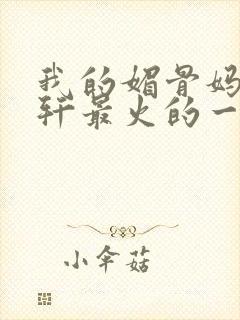 我的媚骨妈
轩最火的一
小伞菇